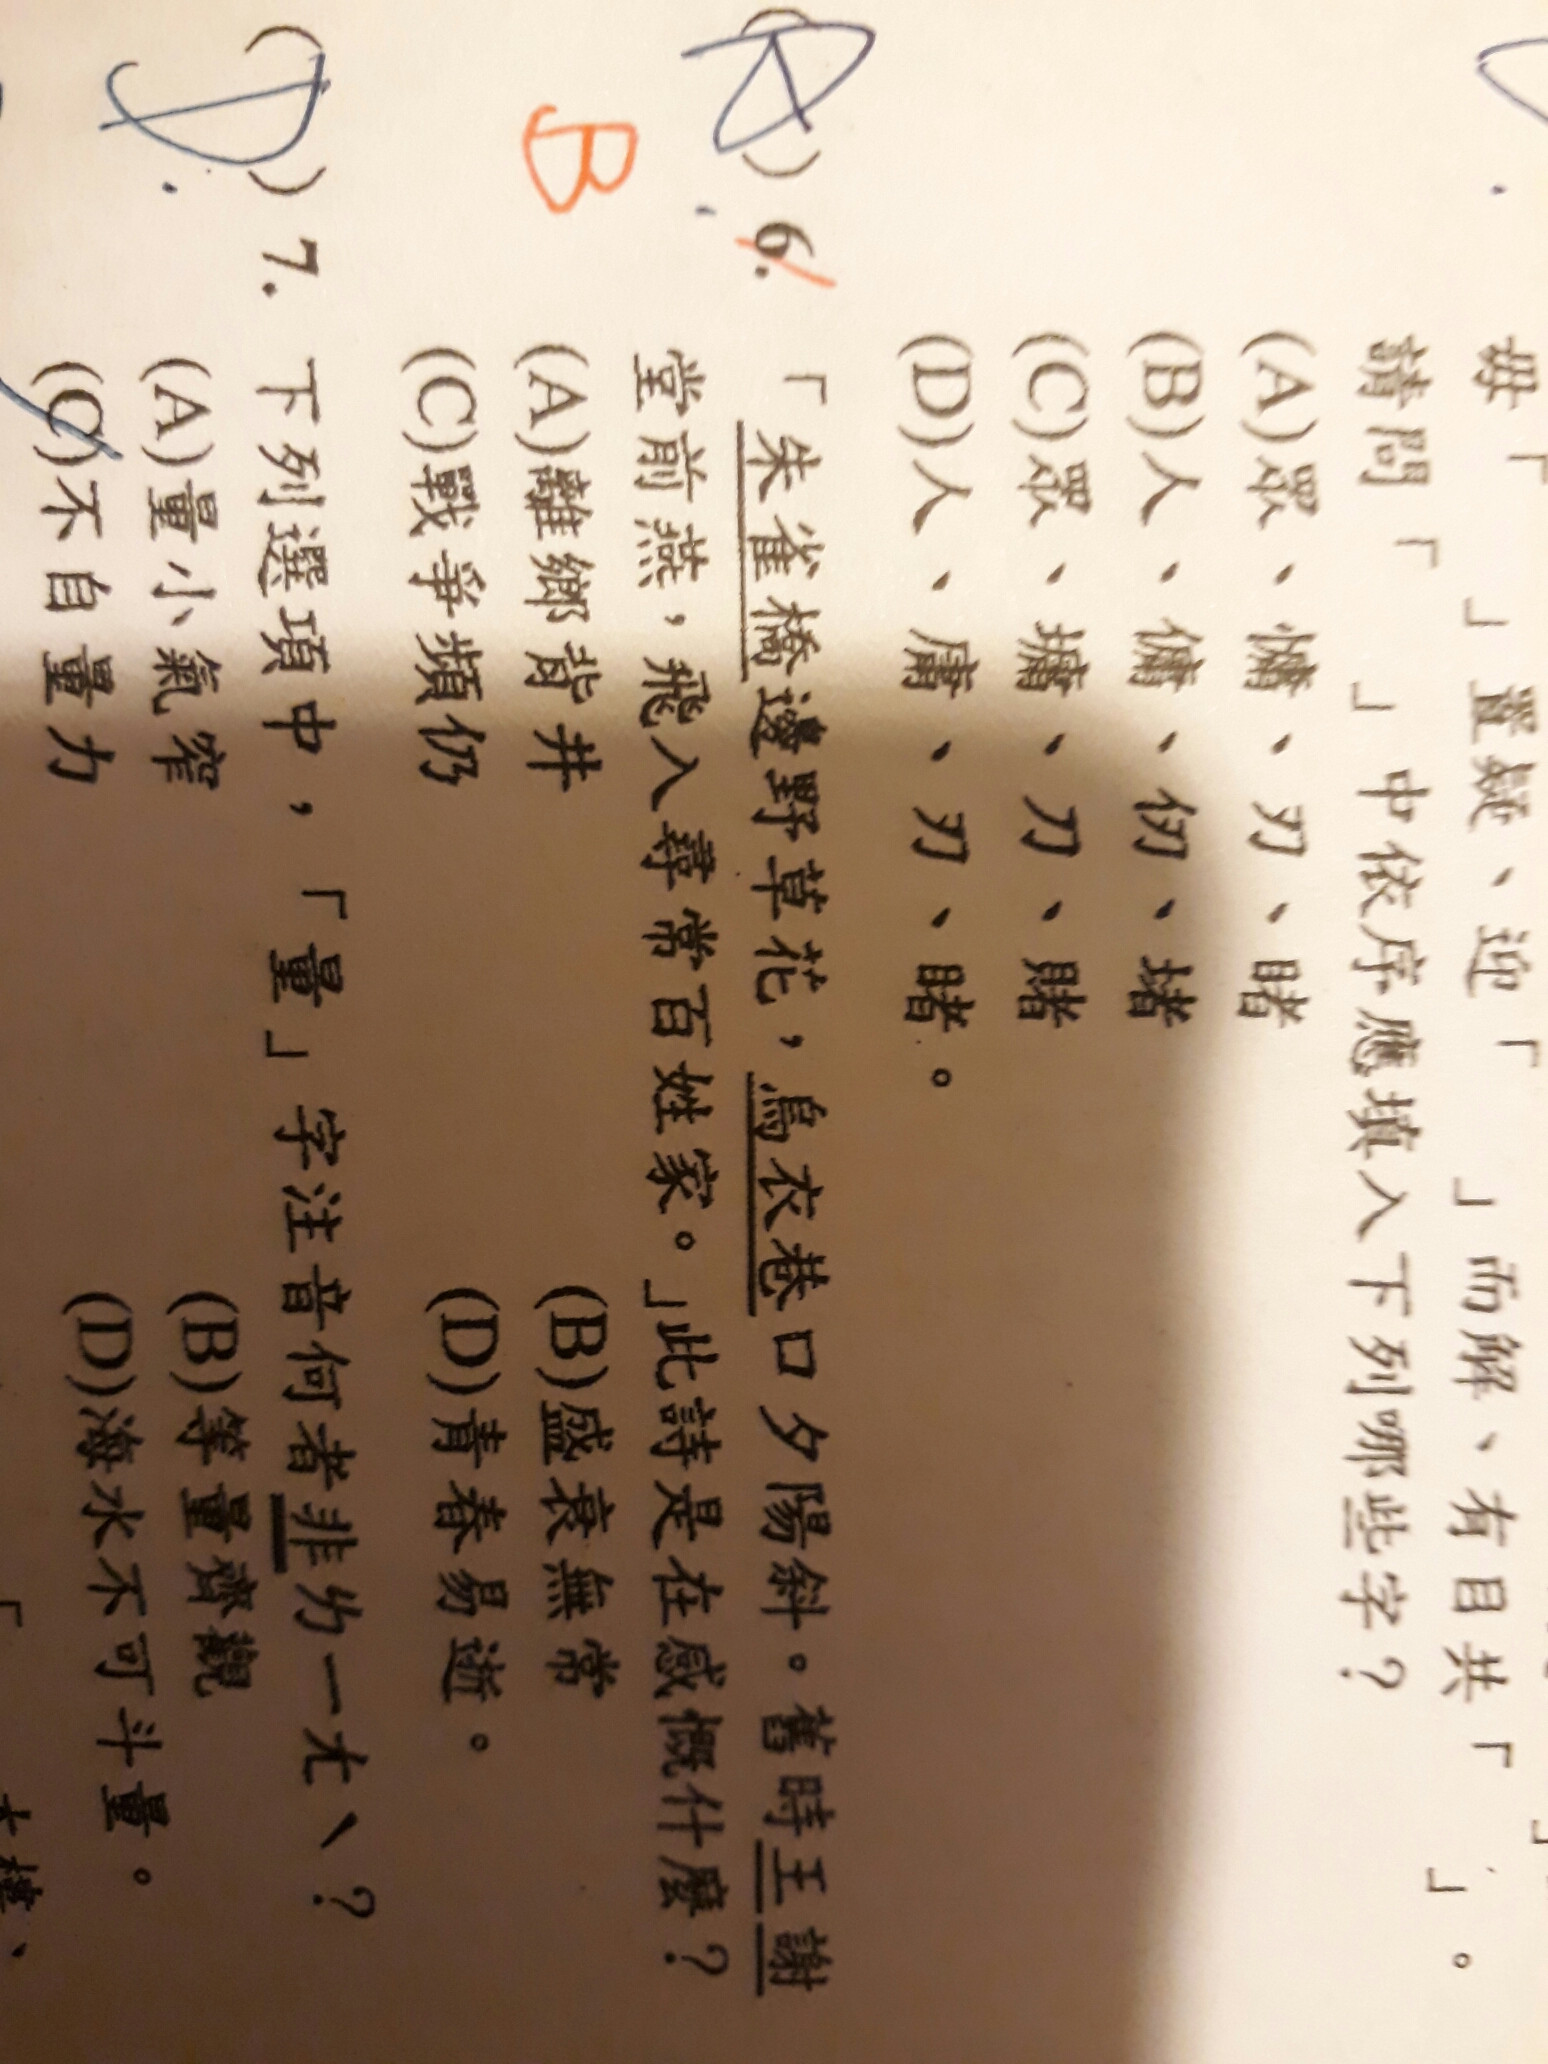 毋「　」置疑、迎「　」而解、有目共「　」。
請問「　」中依序應填入下列哪些字？
(A)眾、慵、刃、睹
(B)人、傭、仞、堵
(C)眾、墉、刀、賭
(D)人、庸、刃、睹。
(A) 6. 「朱雀橋邊野草花，烏衣巷口夕陽斜。舊時王謝
堂前燕，飛入尋常百姓家。」此詩是在感慨什麼？
B
(A)離鄉背井 (B)盛衰無常
(C)戰爭頻仍 (D)青春易逝。
(D) 7. 下列選項中，「量」字注音何者非ㄌㄧㄤˋ？
(A)量小氣窄 (B)等量齊觀
(C)不自量力 (D)海水不可斗量。